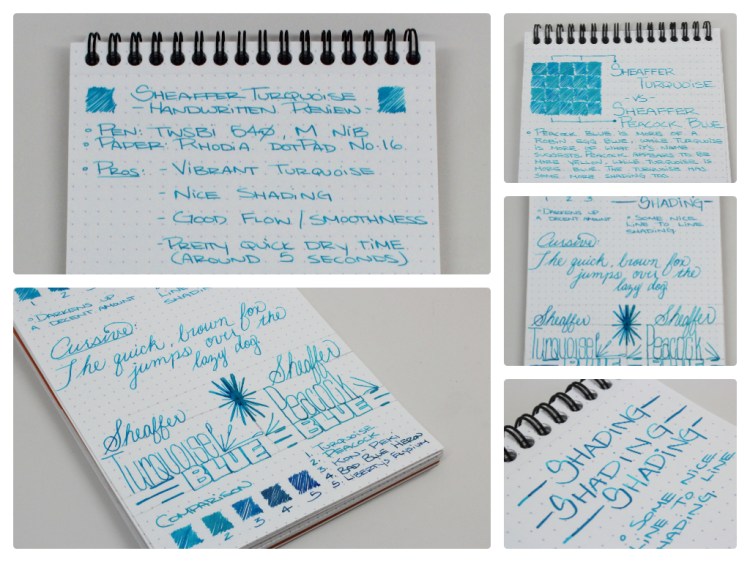 SHEAFFER TURQUOISE
- HANDWRITTEN REVIEW -
• PEN: TWSBI 540, M NIB
• PAPER: RHODIA DOTPAD NO. 16
• PROS: - VIBRANT TURQUOISE
- NICE SHADING
- GOOD FLOW / SMOOTHNESS
- PRETTY QUICK DRY TIME
(AROUND 5 SECONDS)
SHEAFFER
TURQUOISE
- VS -
SHEAFFER
PEACOCK BLUE
• PEACOCK BLUE IS MORE OF A
ROBIN EGG BLUE, WHILE TURQUOISE
IS MORE OF WHAT IT'S NAME
SUGGESTS. PEACOCK APPEARS TO BE
MORE YELLOW, WHILE TURQUOISE IS
MORE BLUE. THE TURQUOISE HAS
SOME MORE SHADING TOO.
1 2 3
SHADING-
• DARKENS UP
A DECENT AMOUNT
• SOME NICE
LINE TO LINE
SHADING
Cursive:
The quick, brown fox
jumps, over the
lazy dog
Sheaffer
Turquoise
Sheaffer
Peacock
BLUE
1 2
• DARKENS UP
A DECENT AMOUNT
LINE
SHADING
Cursive:
The quick, brown fox
jumps, over the
lazy dog
Sheaffer
Turquoise
BLUE
Sheaffer
Peacock
BLUE
COMPARISON
1 2 3 4 5
1. TURQUOISE
2. PEACOCK
3. KON-PEKI
4. BAD BLUE HERON
5. LIBERTY'S ELYSIUM
- SHADING -
- SHADING -
- SHADING -
• SOME NICE
LINE TO LINE
SHADING